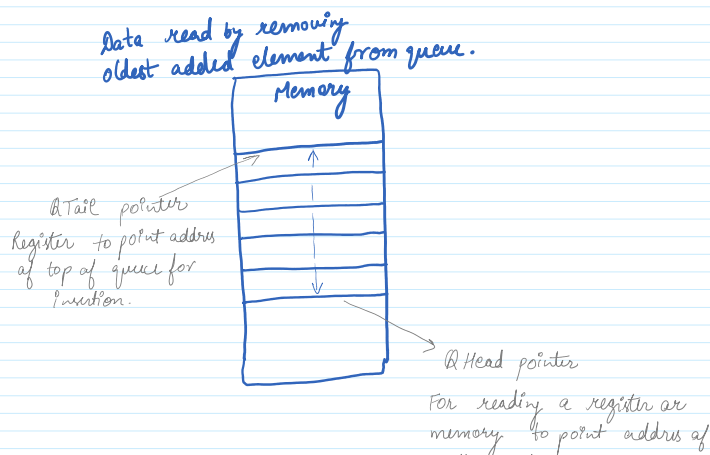 Data read by removing
oldest added element from queue.
Memory
QTail pointer
Register to point addres
of top of queue for
insertion.
Q Head pointer
For reading a register or
memory to point addres of